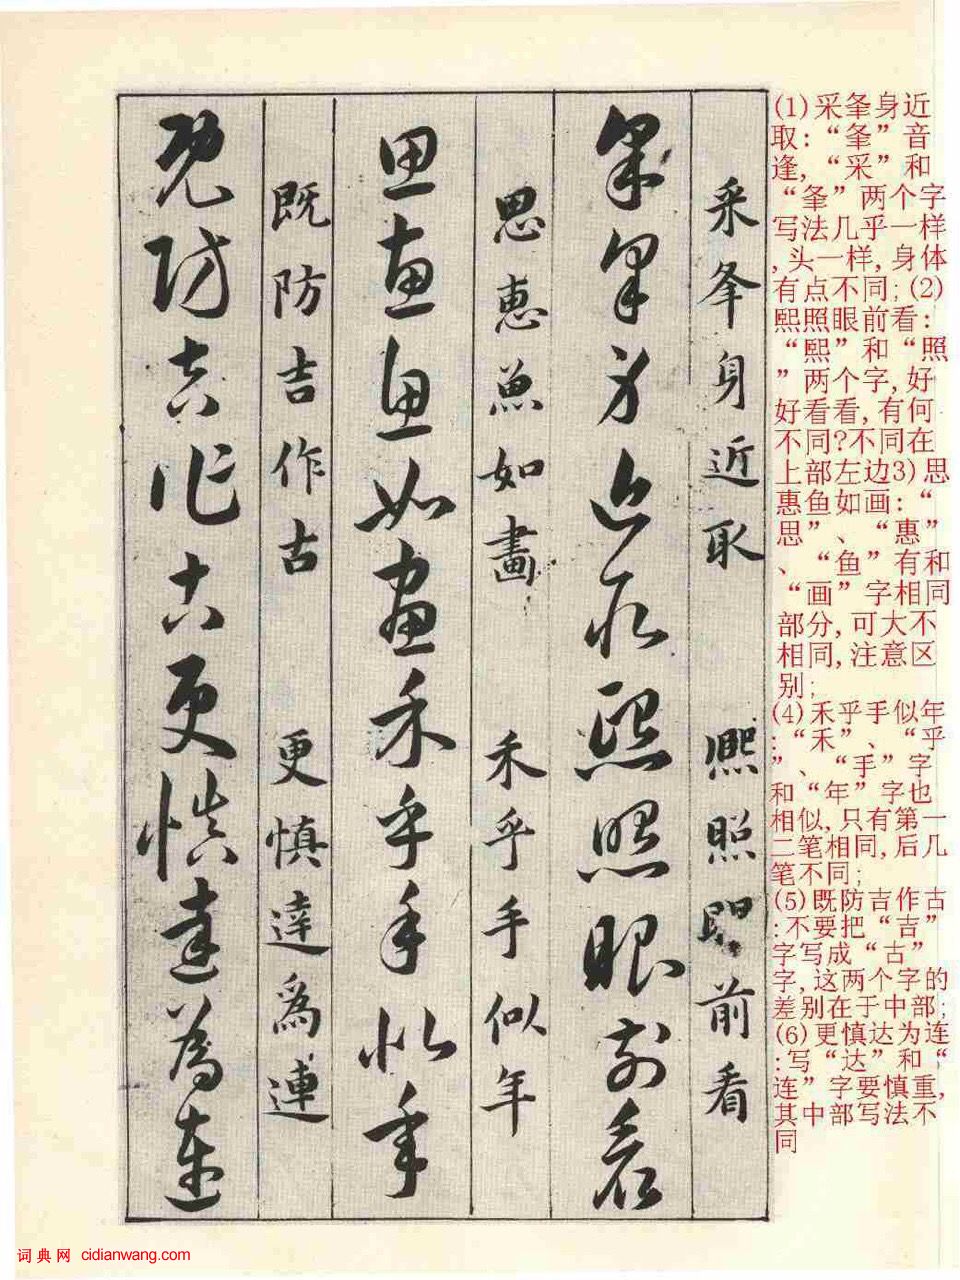 (1)采夆身近
取:“夆”音
逢,“采”和
“夆”两个字
写法几乎一样
,头一样,身体
有点不同;(2)
熙照眼前看:
“熙”和“照
”两个字,好
好看看,有何
不同?不同在
上部左边3)思
惠鱼如画:“
思”、“惠”
、“鱼”有和
“画”字相同
部分,可大不
相同,注意区
别;
(4)禾乎手似年
:“禾”、“乎
”、“手”字
和“年”字也
相似,只有第一
二笔相同,后几
笔不同;
(5)既防吉作古
:不要把“吉”
字写成“古”
字,这两个字的
差别在于中部;
(6)更慎达为连
:写“达”和“
连”字要慎重,
其中部写法不
同
采夆身近取 熙照眼前看
采夆身近取熙照眼前看
思惠魚如畫 禾乎手似年
思惠魚如畫禾乎手似年
既防吉作古 更慎達爲連
既防吉作古更慎達爲連
词典网 cidianwang.com